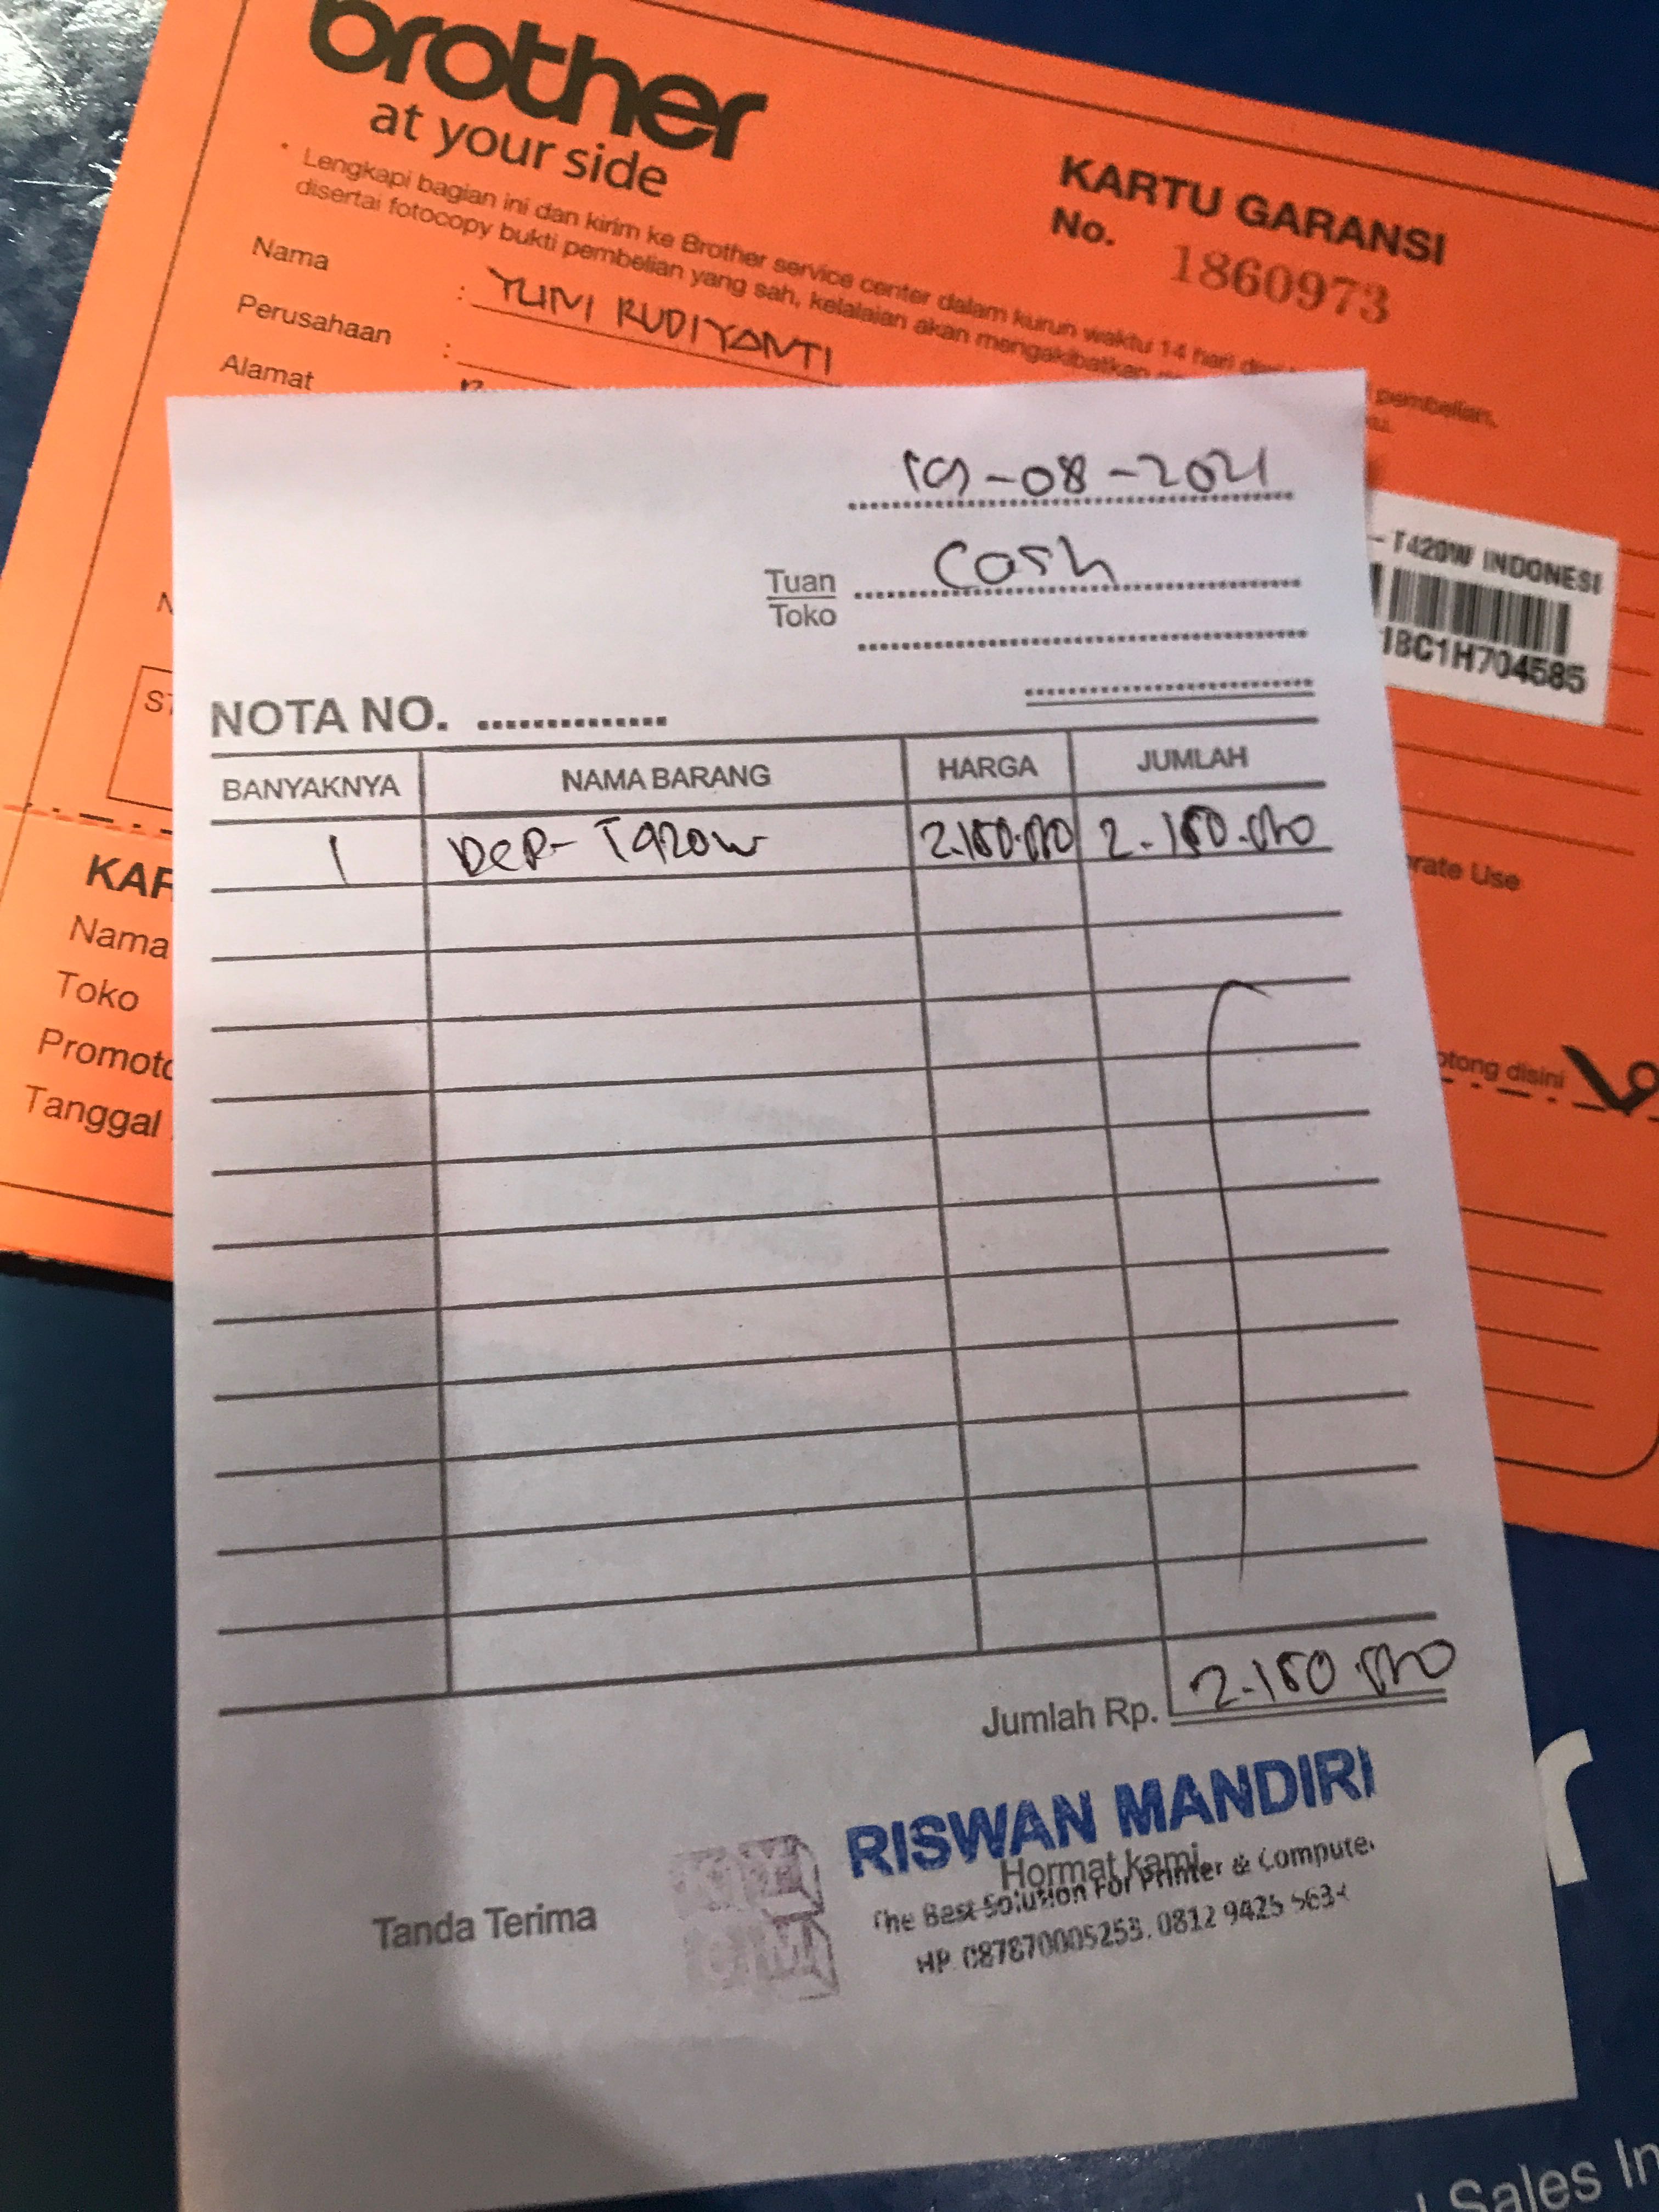 brother
at your side
KARTU GARANSI
No. 1860973
* Lengkapi bagian ini dan kirim ke Brother service center dalam kurun waktu 14 hari pembelian,
disertai fotocopy bukti pembelian yang sah, kelalaian akan mengakibatkan
Nama : YUNI RUDIYANTI
Perusahaan :
Alamat
-T420W INDONESI
BC1H704585
rate Use
otong disini
KAR
Nama
Toko
Promoto
Tanggal
19-08-2021
Tuan Cash
Toko
NOTA NO.
BANYAKNYA NAMA BARANG HARGA JUMLAH
1 DCP-T420W 2.150.000 2.150.000
Jumlah Rp. 2.150.000
RISWAN MANDIRI
Hormat kami,
The Best Solution For Printer & Computer
Tanda Terima
HP. 087870005253, 0812 9425
r
Sales In